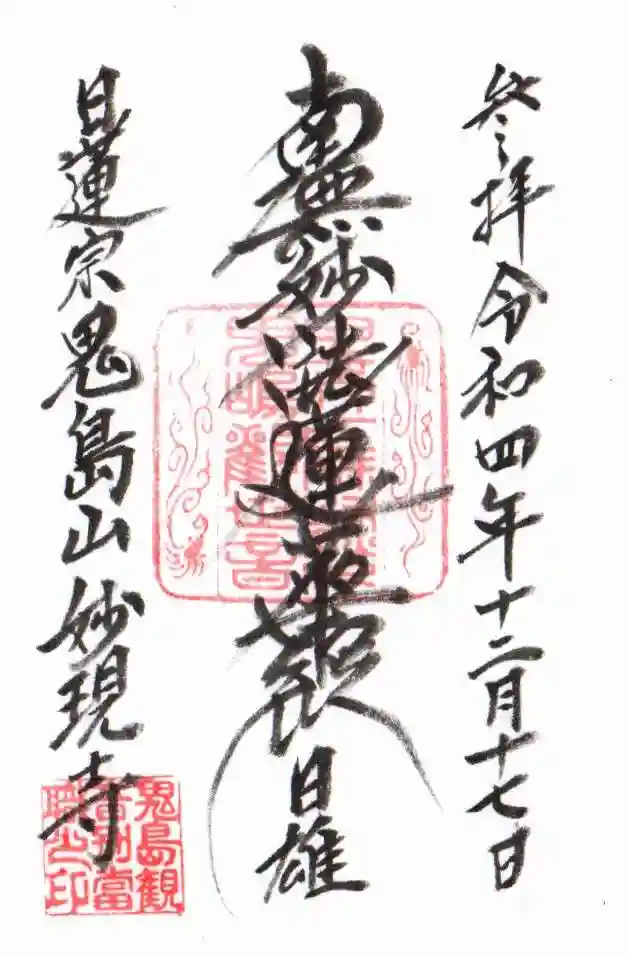 参拝 令和四年十二月十七日
南無妙法蓮華経 日雄
日蓮宗鬼島山妙現寺
鬼島観
音別當
職之印